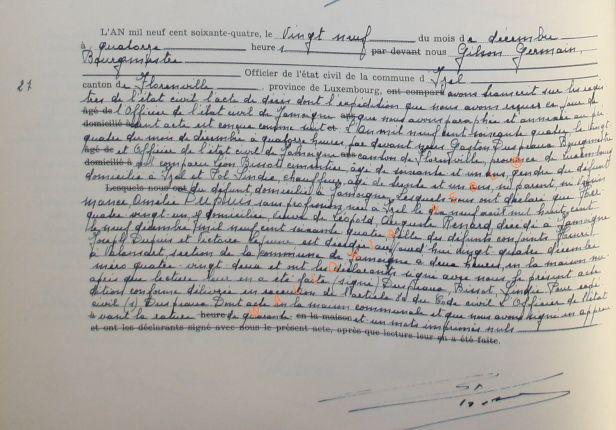 L'AN mil neuf cent soixante-quatre, le Vingt neuf du mois de décembre
à quatorze heures par devant nous Gilson Germain,
Bourgmestre
Officier de l'état civil de la commune d'Izel
27
canton de Florenville, province de Luxembourg, ont comparu avons transcrit sur les regis
tres de l'état civil l'acte de décès dont l'expédition que nous avons reçue ce jour de
âgé de l'Officier de l'état civil de Jamoigne que nous avons paraphée et annexée au
domicilié vant acte est conçue comme suit et L'An mil neuf cent soixante quatre le vingt
quatre du mois de décembre à quatorze heures par devant nous Gaston Bourgmestre
âgé de et Officier de l'état civil de Jamoigne canton de Florenville, province de Luxembourg
domicilié à comparu Léon Bissot âgé de soixante et un ans, gendre du défunt
domicilié à Izel et chauffeur, âgé de trente et un ans, parent,
Lesquels nous ont du défunt, domicilié à Jamoigne, Lesquels nous ont déclaré que
mance Amélie DUPUIS sans profession, née à Izel le neuf août mil huit cent
quatre vingt un y domiciliée, veuve de Léopold Auguste Renard décédé à Jamoigne
le neuf décembre mil neuf cent soixante quatre fille des défunts conjoints
Joseph Dupuis et Victoire Lejeune est décédée aujourd'hui vingt quatre décembre
à section de la commune de Jamoigne à deux heures, en la maison nu
méro quatre-vingt deux et ont les déclarants signé avec nous le présent acte
après que lecture leur en a été faite (signé) Bissot, Pour expé
dition conforme délivrée en exécution de l'article du Code civil L'Officier de l'état
civil (s) Dont acte en la maison communale et que nous avons signé
à vant la rature heure de quarante en la maison et un mots imprimés nuls
et ont les déclarants signé avec nous le présent acte, après que lecture leur en a été faite.